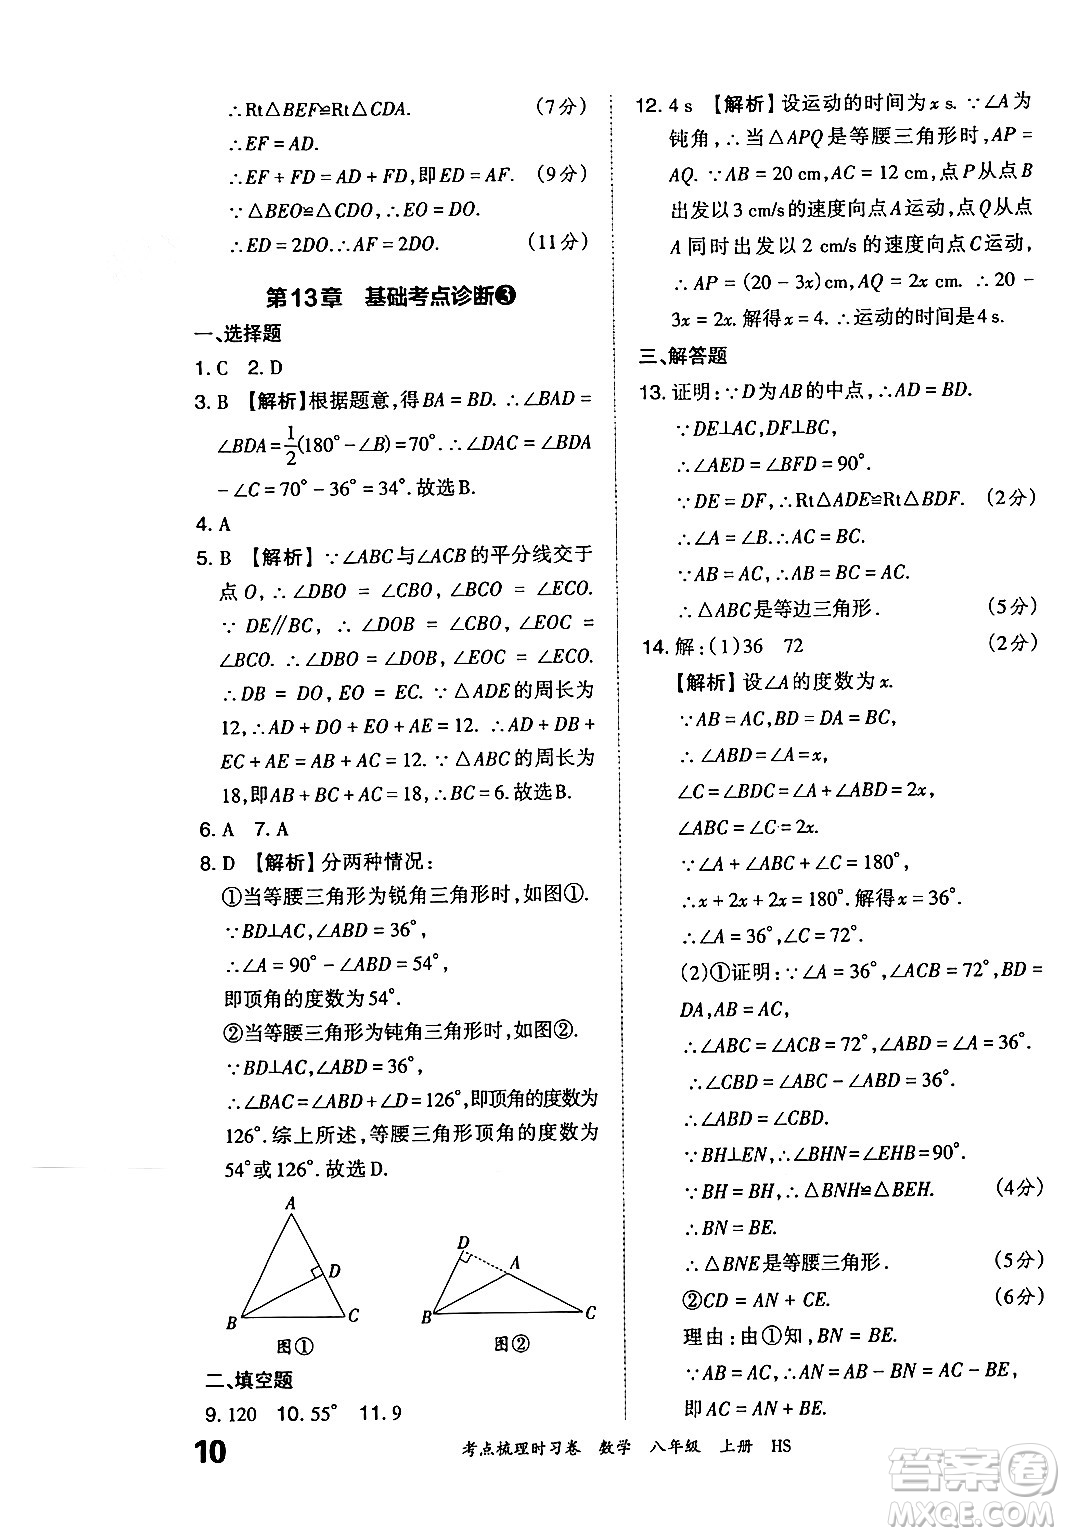 ∴Rt△BEF≌Rt△CDA. (7分)
∴EF=AD.
∴EF+FD=AD+FD,即ED=AF. (9分)
∵△BEO≌△CDO,∴EO=DO.
∴ED=2DO.∴AF=2DO. (11分)
第13章 基础考点诊断❸
一、选择题
1. C 2. D
3. B 【解析】根据题意,得BA=BD. ∴∠BAD=
∠BDA=1/2(180°-∠B)=70°.∴∠DAC=∠BDA
-∠C=70°-36°=34°.故选B.
4. A
5. B 【解析】∵∠ABC与∠ACB的平分线交于
点O,∴∠DBO=∠CBO,∠BCO=∠ECO.
∵DE∥BC,∴∠DOB=∠CBO,∠EOC=
∠BCO. ∴∠DBO=∠DOB,∠EOC=∠ECO.
∴DB=DO,EO=EC. ∵△ADE的周长为
12,∴AD+DO+EO+AE=12. ∴AD+DB+
EC+AE=AB+AC=12. ∵△ABC的周长为
18,即AB+BC+AC=18,∴BC=6.故选B.
6. A 7. A
8. D 【解析】分两种情况:
①当等腰三角形为锐角三角形时,如图①.
∵BD⊥AC,∠ABD=36°,
∴∠A=90°-∠ABD=54°,
即顶角的度数为54°.
②当等腰三角形为钝角三角形时,如图②.
∵BD⊥AC,∠ABD=36°,
∴∠BAC=∠ABD+∠D=126°,即顶角的度数为
126°.综上所述,等腰三角形顶角的度数为
54°或126°.故选D.
A
D
B
C
图①
D
A
B
C
图②
二、填空题
9. 120 10. 55° 11. 9
12. 4 s 【解析】设运动的时间为x s. ∵∠A为
钝角,∴当△APQ是等腰三角形时,AP=
AQ. ∵AB=20 cm,AC=12 cm,点P从点B
出发以3 cm/s的速度向点A运动,点Q从点
A同时出发以2 cm/s的速度向点C运动,
∴AP=(20-3x)cm,AQ=2x cm. ∴20-
3x=2x.解得x=4. ∴运动的时间是4 s.
三、解答题
13. 证明:∵D为AB的中点,∴AD=BD.
∵DE⊥AC,DF⊥BC,
∴∠AED=∠BFD=90°.
∵DE=DF,∴Rt△ADE≌Rt△BDF. (2分)
∴∠A=∠B.∴AC=BC.
∵AB=AC,∴AB=BC=AC.
∴△ABC是等边三角形. (5分)
14. 解:(1)36 72 (2分)
【解析】设∠A的度数为x.
∵AB=AC,BD=DA=BC,
∴∠ABD=∠A=x,
∠C=∠BDC=∠A+∠ABD=2x,
∠ABC=∠C=2x.
∵∠A+∠ABC+∠C=180°,
∴x+2x+2x=180°.解得x=36°.
∴∠A=36°,∠C=72°.
(2)①证明:∵∠A=36°,∠ACB=72°,BD=
DA,AB=AC,
∴∠ABC=∠ACB=72°,∠ABD=∠A=36°.
∴∠CBD=∠ABC-∠ABD=36°.
∴∠ABD=∠CBD.
∵BH⊥EN,∴∠BHN=∠EHB=90°.
∵BH=BH,∴△BNH≌△BEH. (4分)
∴BN=BE.
∴△BNE是等腰三角形. (5分)
②CD=AN+CE. (6分)
理由:由①知,BN=BE.
∵AB=AC,∴AN=AB-BN=AC-BE,
即AC=AN+BE.
10
考点梳理时习卷 数学 八年级 上册 HS
答案圈
MXQE.COM